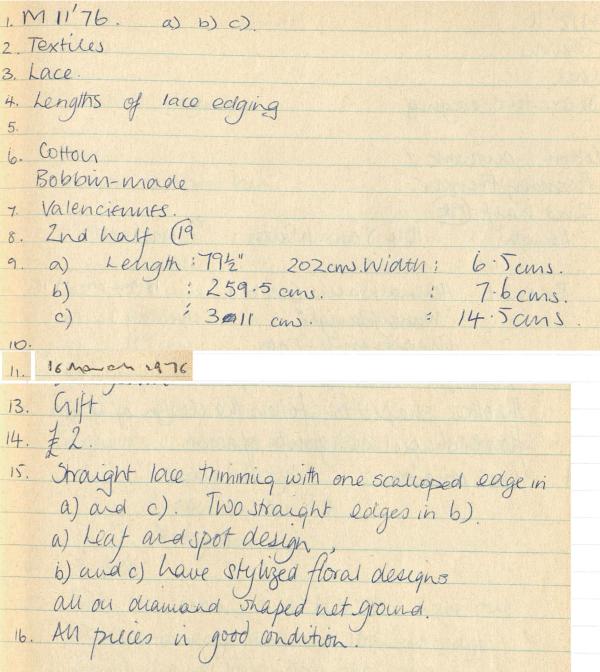 1. M 11'76. a) b) c).
2. Textiles
3. Lace.
4. Lengths of lace edging
5.
6. Cotton
Bobbin-made
7. Valenciennes.
8. 2nd half 19
9. a) Length : 79½" 202cms. Width : 6.5cms.
b) : 259.5 cms. : 7.6cms.
c) : 311 cms : 14.5cms.
10.
11. 16 March 1976
13. Gift
14. £2.
15. Straight lace trimming with one scalloped edge in
a) and c). Two straight edges in b).
a) Leaf and spot design,
b) and c) have stylized floral designs
all on diamond shaped net ground.
16. All pieces in good condition.